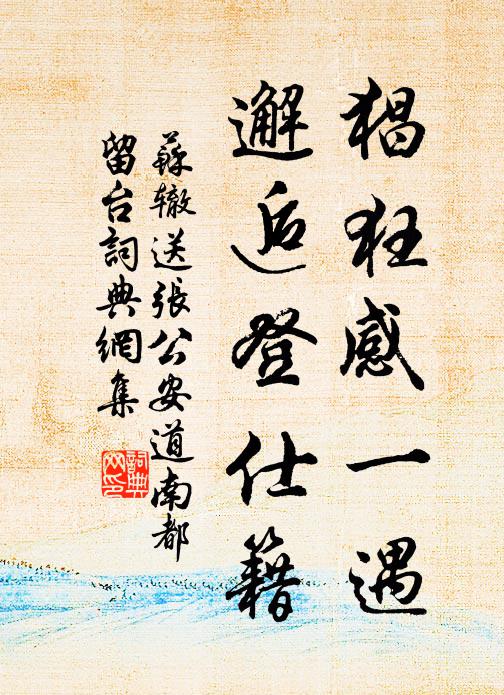 猖狂感一遇
邂逅登仕籍
蘇轍送張公安道南都
留台詞典網集
詞典
网印